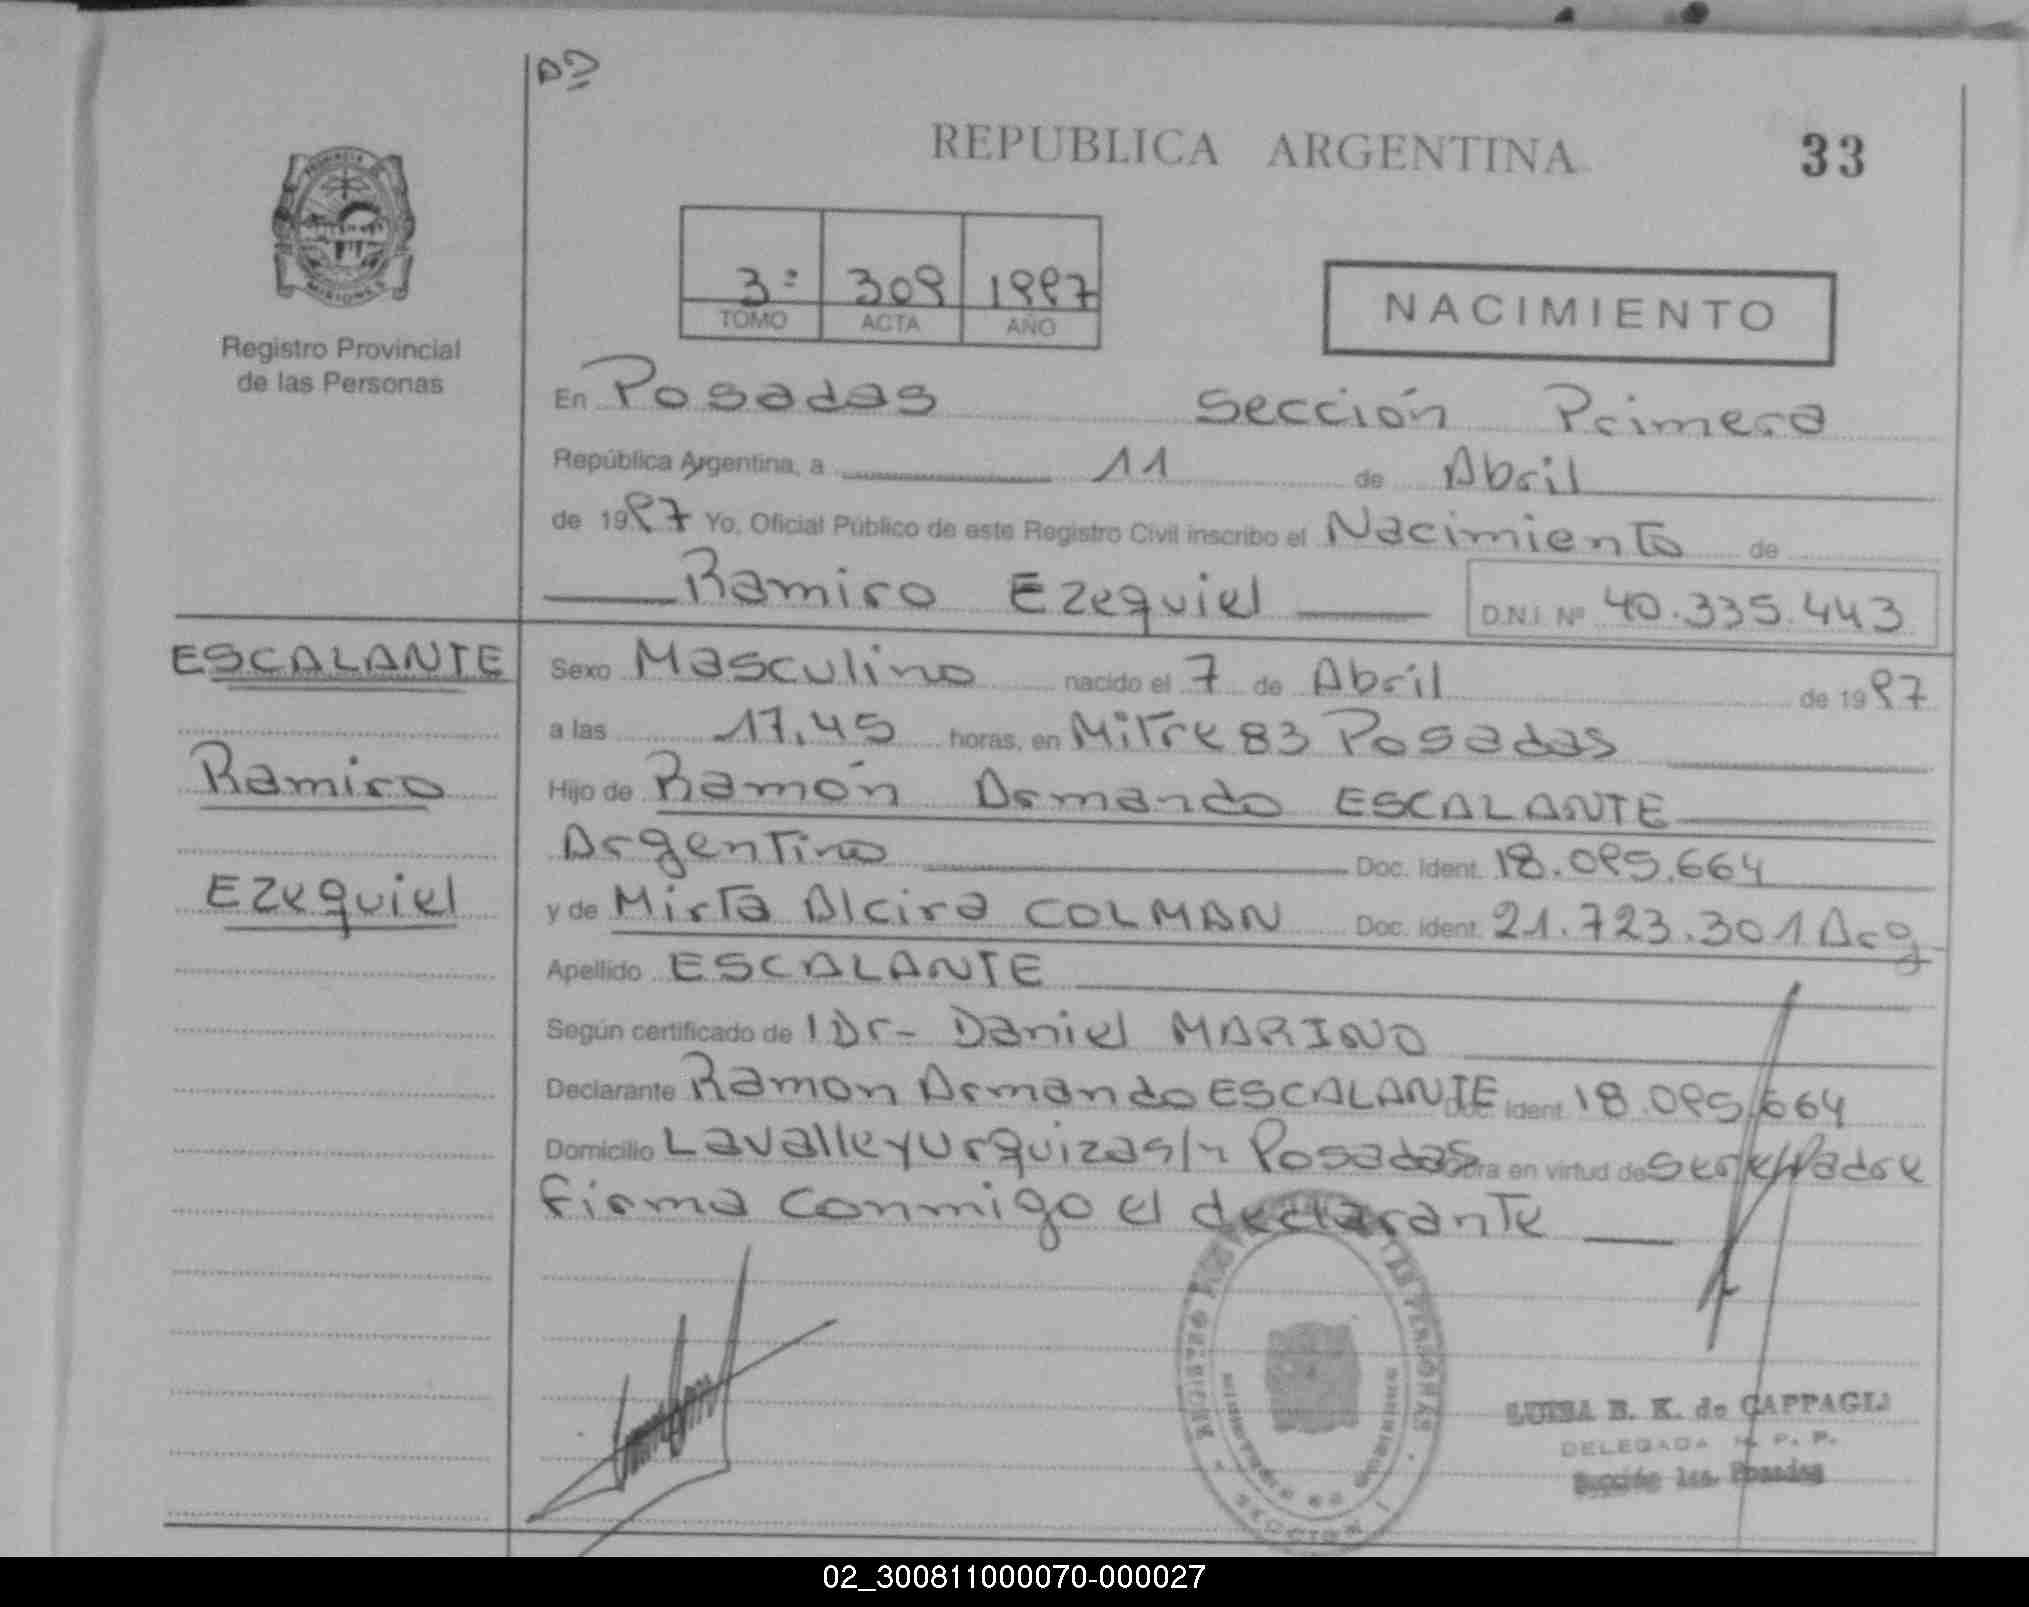 REPUBLICA ARGENTINA
33
PROVINCIA
MISIONES
Registro Provincial
de las Personas
3º 309 1997
TOMO ACTA AÑO
NACIMIENTO
En Posadas Sección Primera
República Argentina, a 11 de Abril
de 1997 Yo, Oficial Público de este Registro Civil inscribo el Nacimiento de
Ramiro Ezequiel D.N.I. Nº 40.335.443
ESCALANTE
Ramiro
Ezequiel
Sexo Masculino nacido el 7 de Abril de 1997
a las 17,45 horas, en Mitre 83 Posadas
Hijo de Ramón Armando ESCALANTE
Argentino Doc. Ident. 18.095.664
y de Mirta Alcira COLMAN Doc. Ident. 21.723.301 Arg
Apellido ESCALANTE
Según certificado de l Dr- Daniel MARINO
Declarante Ramon Armando ESCALANTE Doc. Ident. 18.095.664
Domicilio Lavalle y Urquiza s/n Posadas en virtud de ser el Padre
firma conmigo el declarante
SECCION 1
LUISA B. K. de
DELEGADA R. P. P.
Sección 1ra. Posadas
02_300811000070-000027